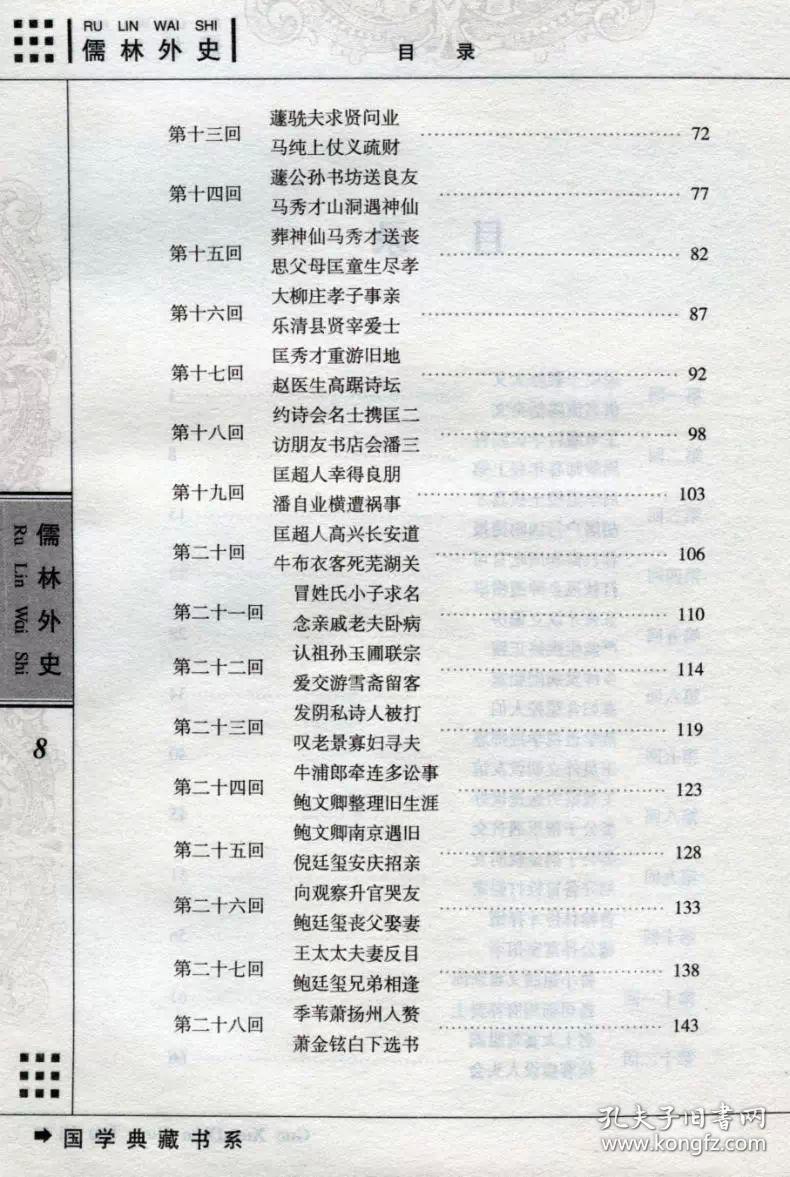 RU LIN WAI SHI
儒林外史
目 录
蘧𬳽夫求贤问业
第十三回 72
马纯上仗义疏财
蘧公孙书坊送良友
第十四回 77
马秀才山洞遇神仙
葬神仙马秀才送丧
第十五回 82
思父母匡童生尽孝
大柳庄孝子事亲
第十六回 87
乐清县贤宰爱士
匡秀才重游旧地
第十七回 92
赵医生高踞诗坛
约诗会名士携匡二
第十八回 98
访朋友书店会潘三
匡超人幸得良朋
第十九回 103
潘自业横遭祸事
匡超人高兴长安道
第二十回 106
牛布衣客死芜湖关
冒姓氏小子求名
第二十一回 110
念亲戚老夫卧病
认祖孙玉圃联宗
第二十二回 114
爱交游雪斋留客
发阴私诗人被打
第二十三回 119
叹老景寡妇寻夫
牛浦郎牵连多讼事
第二十四回 123
鲍文卿整理旧生涯
鲍文卿南京遇旧
第二十五回 128
倪廷玺安庆招亲
向观察升官哭友
第二十六回 133
鲍廷玺丧父娶妻
王太太夫妻反目
第二十七回 138
鲍廷玺兄弟相逢
季苇萧扬州入赘
第二十八回 143
萧金铉白下选书
儒林外史
Ru Lin Wai Shi
8
国学典藏书系
孔夫子旧书网
www.kongfz.com